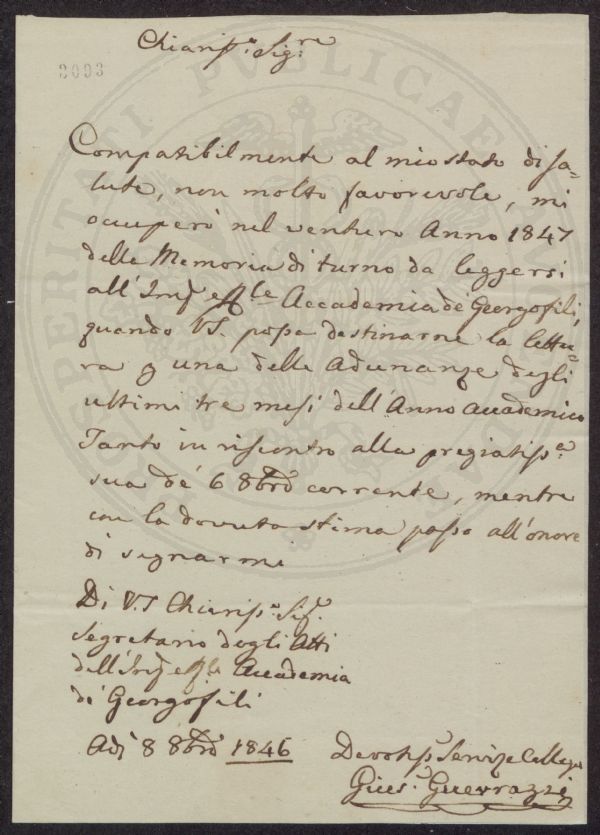 Chiariss.º Sig.re
3093
PROSPERITATI PVBLICAE
Compatibilmente al mio stato di sa=
lute, non molto favorevole, mi
occuperò nel venturo Anno 1847
della Memoria di turno da leggersi
all'Imp. e R.le Accademia de' Georgofili,
quando VS. possa destinarne la lettu=
ra p una delle Adunanze degli
ultimi tre mesi dell'Anno Accademico
Tanto in riscontro alla pregiatiss.a
sua de' 6 8bre corrente, mentre
con la dovuta stima passo all'onore
di segnarmi
Di V.S Chiariss.º Sig.
Segretario degli Atti
dell'Imp e R.le Accademia
de' Georgofili
Adì 8 8bre 1846
Devotiss.º Serv.re e Collega
Gius.e Guerrazzi